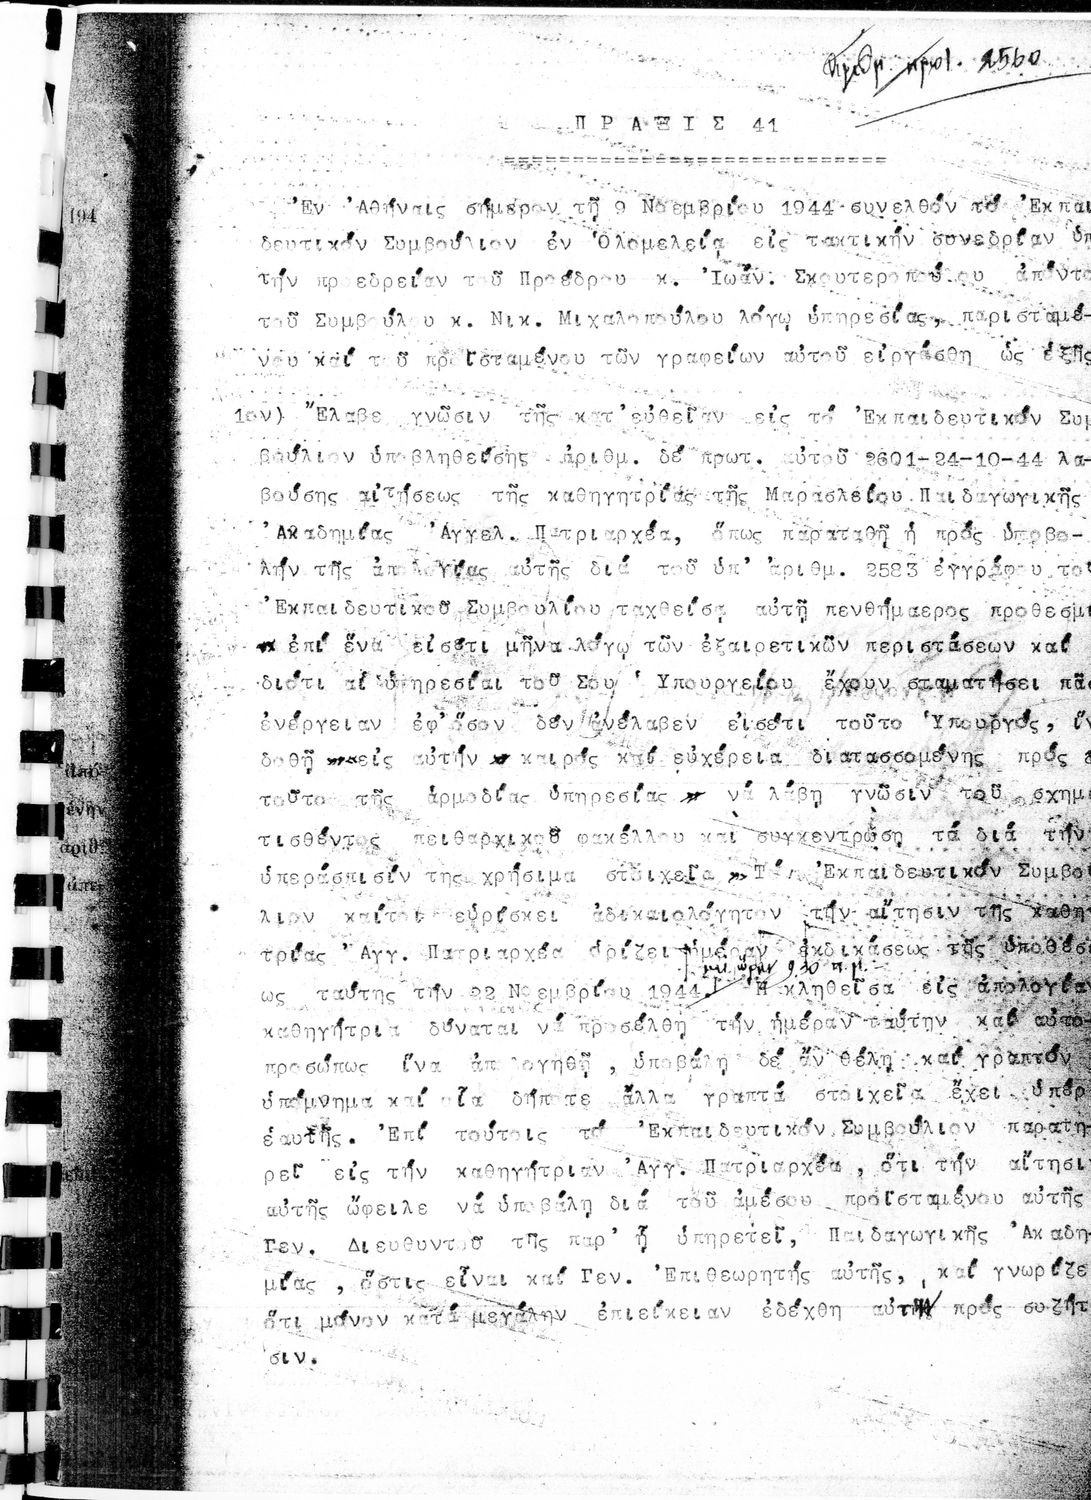 Ἀριθμ. πρωτ. 2560
ΠΡΑΞΙΣ 41
===========================
194
Ἐν Ἀθήναις σήμερον τῇ 9 Νοεμβρίου 1944 συνελθόν τό Ἐκπαι
δευτικόν Συμβούλιον ἐν Ὁλομελείᾳ εἰς τακτικήν συνεδρίαν ὑπ
τήν προεδρείαν τοῦ Προέδρου κ. Ἰωάν. Σκουτεροπούλου ἀπόντο
τοῦ Συμβούλου κ. Νικ. Μιχαλοπούλου λόγῳ ὑπηρεσίας, παρισταμέ-
νου καί τοῦ προϊσταμένου τῶν γραφείων αὐτοῦ εἰργάσθη ὡς ἑξῆς
1ον) Ἔλαβε γνῶσιν τῆς κατ'εὐθεῖαν εἰς τό Ἐκπαιδευτικόν Συμ
βούλιον ὑποβληθείσης ἀριθμ. δέ πρωτ. αὐτοῦ 2601-24-10-44 λα-
βούσης αἰτήσεως τῆς καθηγητρίας τῆς Μαρασλείου Παιδαγωγικῆς
Ἀκαδημίας Ἀγγελ. Πατριαρχέα, ὅπως παραταθῇ ἡ πρός ὑποβο-
λήν τῆς ἀπολογίας αὐτῆς διά τοῦ ὑπ' ἀριθμ. 2583 ἐγγράφου τοῦ
Ἐκπαιδευτικοῦ Συμβουλίου ταχθεῖσα αὐτῇ πενθήμαερος προθεσμί
" ἐπί ἕνα εἰσέτι μῆνα λόγῳ τῶν ἐξαιρετικῶν περιστάσεων καί
διότι αἱ ὑπηρεσίαι τοῦ Σου Ὑπουργείου ἔχουν σταματήσει πᾶσ
ἐνέργειαν ἐφ'ὅσον δέν ἀνέλαβεν εἰσέτι τοῦτο Ὑπουργός, ἵν
δοθῇ " εἰς αὐτήν " καιρός καί εὐχέρεια διατασσομένης πρός
τοῦτο τῆς ἁρμοδίας ὑπηρεσίας " νά λάβῃ γνῶσιν τοῦ σχημα
τισθέντος πειθαρχικοῦ φακέλλου καί συγκεντρώσῃ τά διά τήν
ὑπεράσπισίν της χρήσιμα στοιχεῖα " Τό Ἐκπαιδευτικόν Συμβού
λιον καίτοι εὑρίσκει ἀδικαιολόγητον τήν αἴτησιν τῆς καθη
τρίας Ἀγγ. Πατριαρχέα ὁρίζει ἡμέραν ἐκδικάσεως τῆς ὑποθέσε
καί ὥραν 9.30 π.μ.
ως ταύτης τήν 22 Νοεμβρίου 1944. Ἡ κληθεῖσα εἰς ἀπολογίαν
καθηγήτρια δύναται νά προσέλθῃ τήν ἡμέραν ταύτην καί αὐτο-
προσώπως ἵνα ἀπολογηθῇ , ὑποβάλῃ δέ ἄν θέλῃ καί γραπτόν
ὑπόμνημα καί οἷα δήποτε ἄλλα γραπτά στοιχεῖα ἔχει ὑπέρ
ἑαυτῆς. Ἐπί τούτοις τό Ἐκπαιδευτικόν Συμβούλιον παρατη-
ρεῖ εἰς τήν καθηγήτριαν Ἀγγ. Πατριαρχέα , ὅτι τήν αἴτησι
αὐτῆς ὤφειλε νά ὑποβάλῃ διά τοῦ ἀμέσου προϊσταμένου αὐτῆς
Γεν. Διευθυντοῦ τῆς παρ' ᾗ ὑπηρετεῖ, Παιδαγωγικῆς Ἀκαδη
μίας , ὅστις εἶναι καί Γεν. Ἐπιθεωρητής αὐτῆς, καί γνωρίζε
ὅτι μόνον κατά μεγάλην ἐπιείκειαν ἐδέχθη αὐτήν πρός συζήτ
σιν.